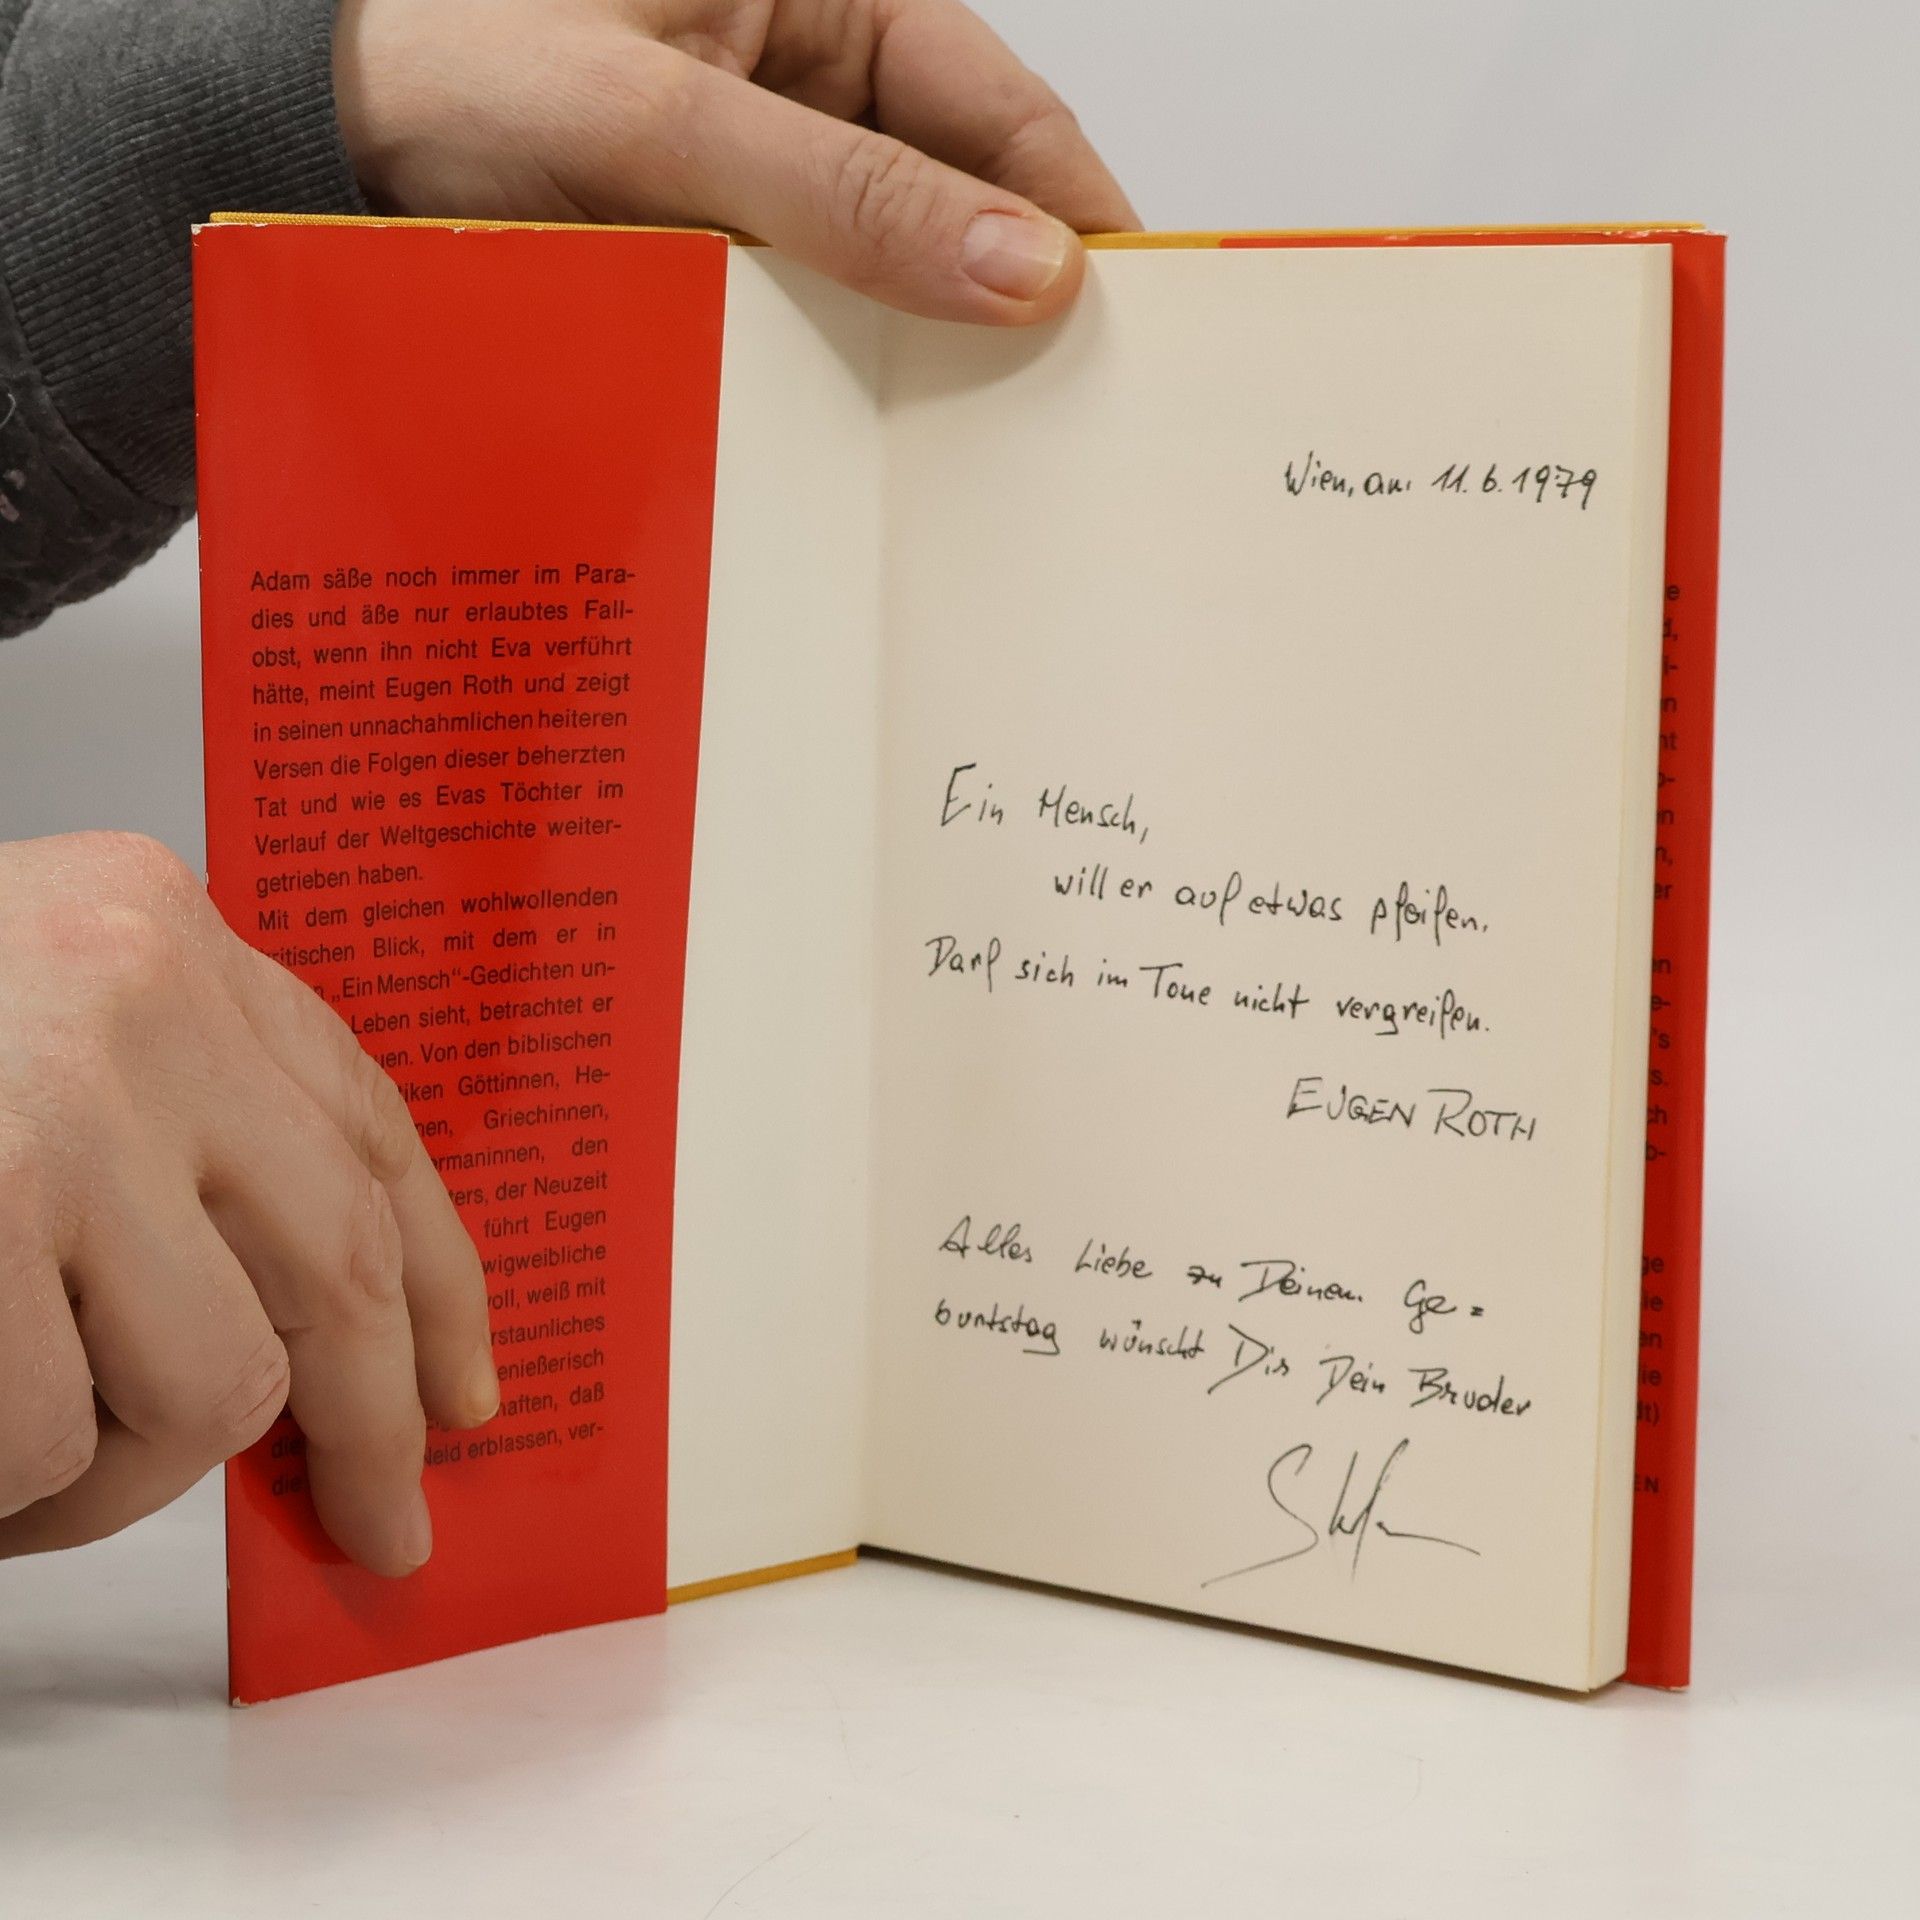 Adam säße noch immer im Para-
dies und äße nur erlaubtes Fall-
obst, wenn ihn nicht Eva verführt
hätte, meint Eugen Roth und zeigt
in seinen unnachahmlichen heiteren
Versen die Folgen dieser beherzten
Tat und wie es Evas Töchter im
Verlauf der Weltgeschichte weiter-
getrieben haben.
Mit dem gleichen wohlwollenden
ritischen Blick, mit dem er in
n „Ein Mensch“-Gedichten un-
Leben sieht, betrachtet er
uen. Von den biblischen
iken Göttinnen, He-
nen, Griechinnen,
ermaninnen, den
ters, der Neuzeit
führt Eugen
wigweibliche
voll, weiß mit
rstaunliches
enießerisch
haften, daß
die Neid erblassen, ver-
die
Wien, am 11.6.1979
Ein Mensch,
will er auf etwas pfeifen,
Darf sich im Tone nicht vergreifen.
EUGEN ROTH
Alles Liebe zu Deinem Ge=
burtstag wünscht Dir Dein Bruder
Stefan